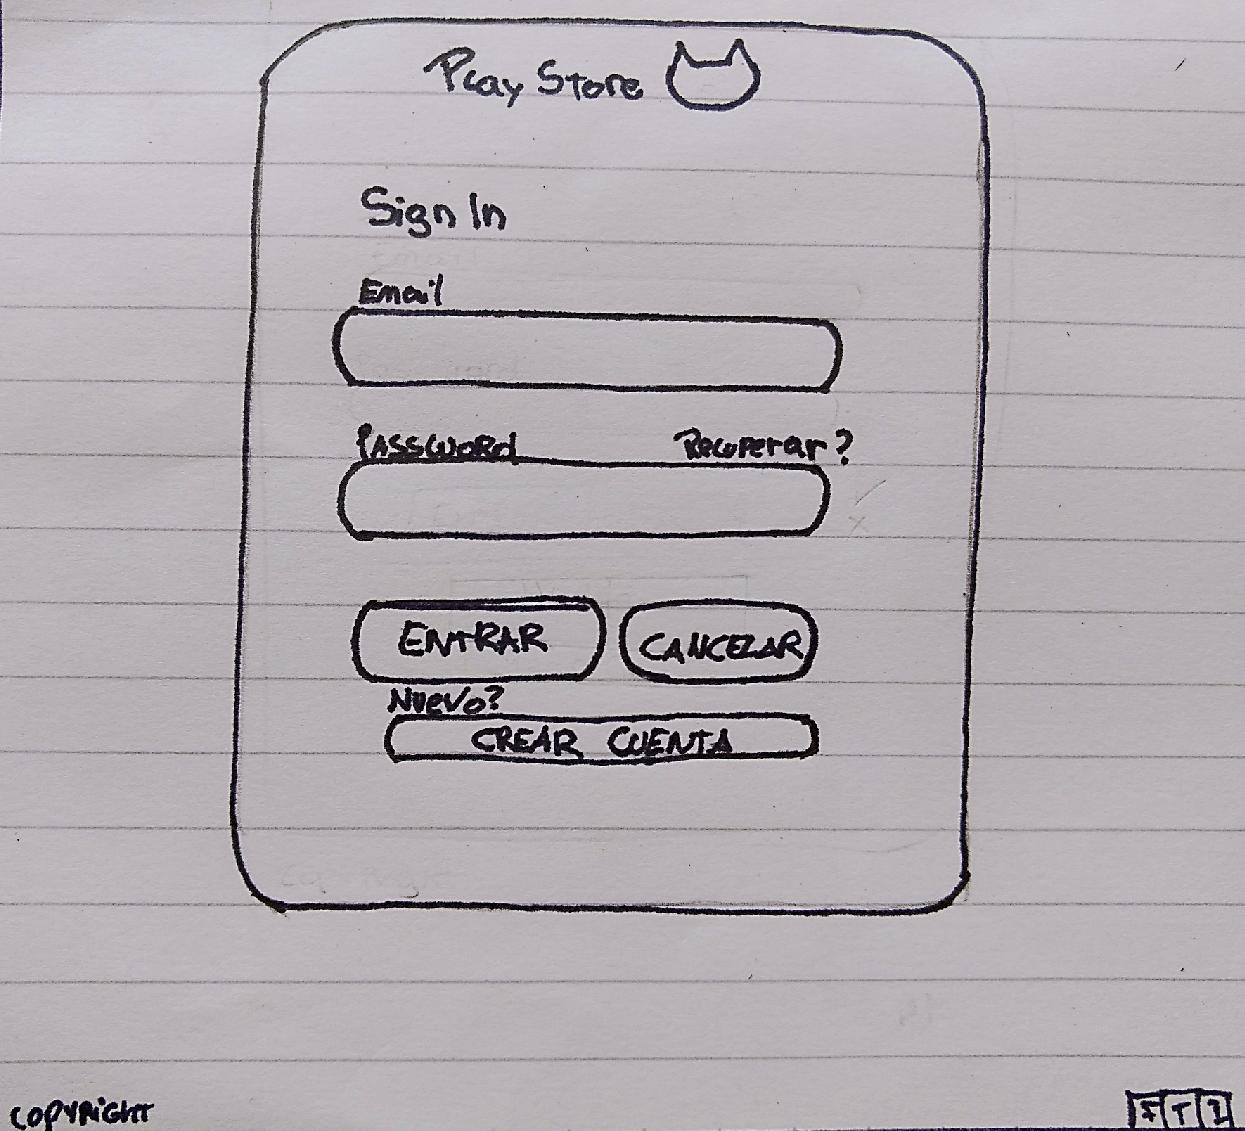 Play Store
Sign In
Email
PASSWORD Recuperar?
ENTRAR CANCELAR
Nuevo?
CREAR CUENTA
COPYRIGHT